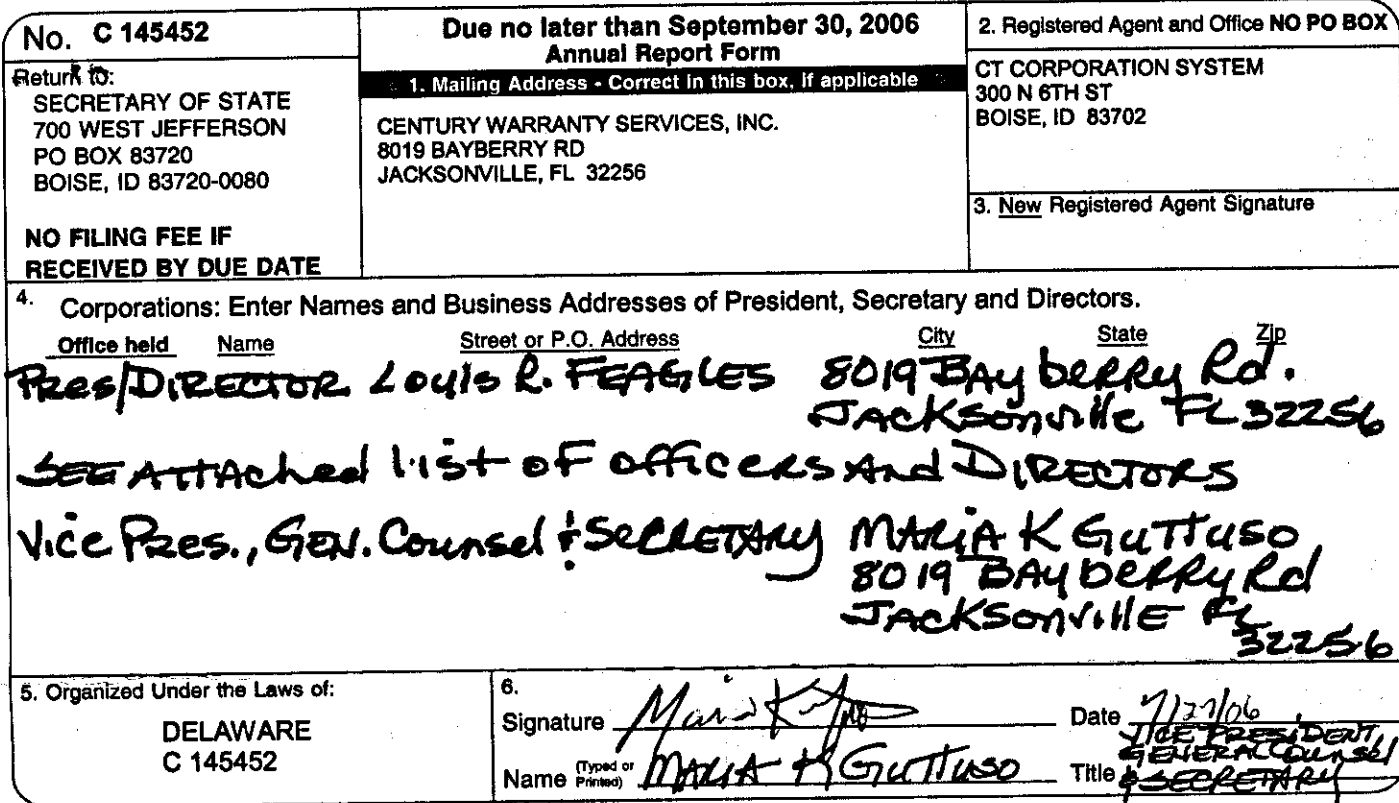 No. C 145452
Return to:
SECRETARY OF STATE
700 WEST JEFFERSON
PO BOX 83720
BOISE, ID 83720-0080
NO FILING FEE IF
RECEIVED BY DUE DATE
Due no later than September 30, 2006
Annual Report Form
1. Mailing Address - Correct in this box, if applicable
CENTURY WARRANTY SERVICES, INC.
8019 BAYBERRY RD
JACKSONVILLE, FL 32256
2. Registered Agent and Office NO PO BOX
CT CORPORATION SYSTEM
300 N 6TH ST
BOISE, ID 83702
3. New Registered Agent Signature
4. Corporations: Enter Names and Business Addresses of President, Secretary and Directors.
Office held Name Street or P.O. Address City State Zip
Pres/DIRECTOR Louis R. FEAGLES 8019 BAyberry Rd.
JAcksonville FL 32256
SEE ATTAched list oF officers And DIRECTORS
Vice Pres., GEN. Counsel & SecRETARy MARIA K GuTTuso
8019 BAyberry Rd
JAcksonvillE FL
32256
5. Organized Under the Laws of:
DELAWARE
C 145452
6.
Signature
Date 7/27/06
Name (Typed or Printed) MARIA K GuTTuso
Title VICE PRESIDENT,
GENERAL Counsel
& SECRETARY